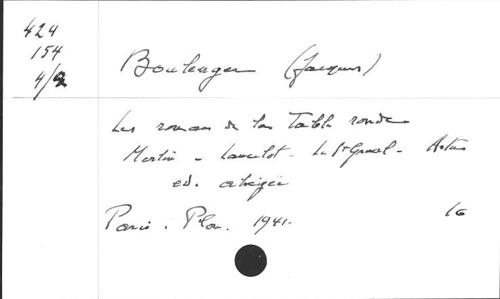 424
154
4/9
Boulenger (Jacques)
Les romans de la Table ronde
Merlin - Lancelot - Le St Graal - Artus
ed. abrégée
Paris. Plon. 1941.
16